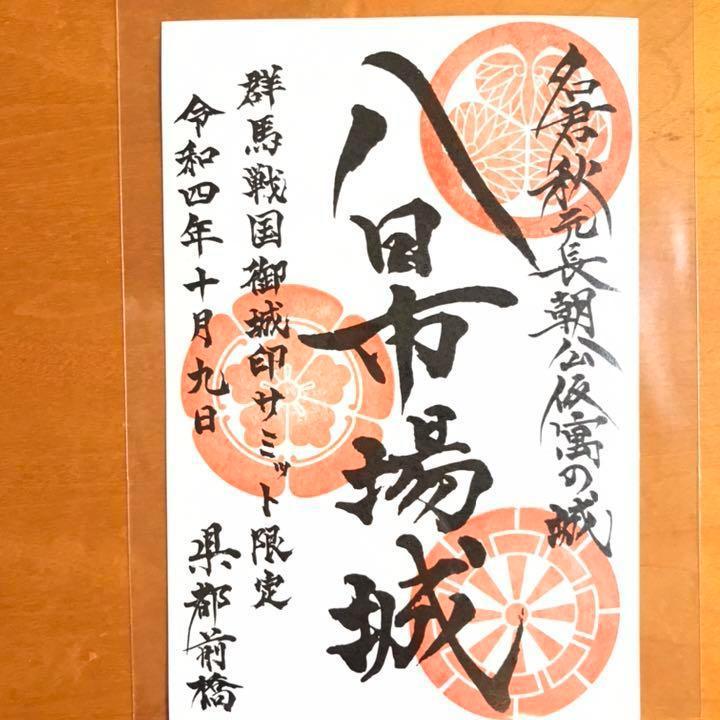 名君秋元長朝公仮寓の城
八日市場城
群馬戦国御城印サミット限定
令和四年十月九日
県都前橋